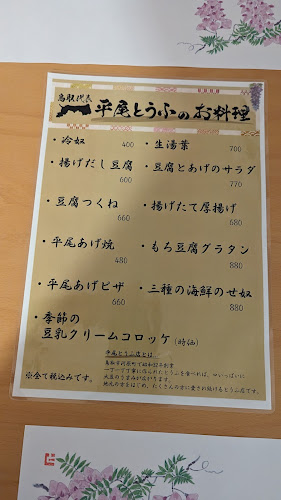 鳥取代表
平尾とうふのお料理
・冷奴 400
・生湯葉 700
・揚げだし豆腐 600
・豆腐とあげのサラダ 770
・豆腐つくね 660
・揚げたて厚揚げ 680
・平尾あげ焼 480
・もち豆腐グラタン 880
・平尾あげピザ 660
・三種の海鮮のせ奴 880
・季節の
豆乳クリームコロッケ (時価)
平尾とうふ店とは…
※全て税込みです。